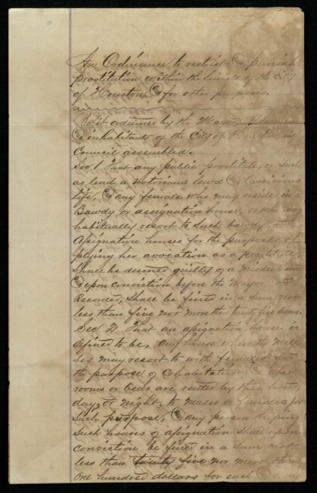 An Ordinance to restrict & punish
prostitution within the limits of the City
of Houston, & for other purposes.
Be it ordained by the Mayor
& inhabitants of the City of
Council assembled.
Sec 1 That any public prostitute, or such
as lead a notorious lewd & lascivious
life, & any female who may reside in a
Bawdy or assignation house, or who may
habitually resort to such
Assignation houses for the purpose of
plying her avocation as a prostitute
shall be deemed guilty of a
& upon conviction before the Mayor or
Recorder, shall be fined in a sum not
less than five nor more than
Sec 2. That an assignation house is
defined to be, any house or
ies may resort to with females for
the purpose of cohabitation, & where
rooms or beds are rented by the
day or night, to males or females for
such purpose, & any person
such houses of assignation shall upon
conviction be fined in a sum not
less than twenty five nor more than
one hundred dollars for each